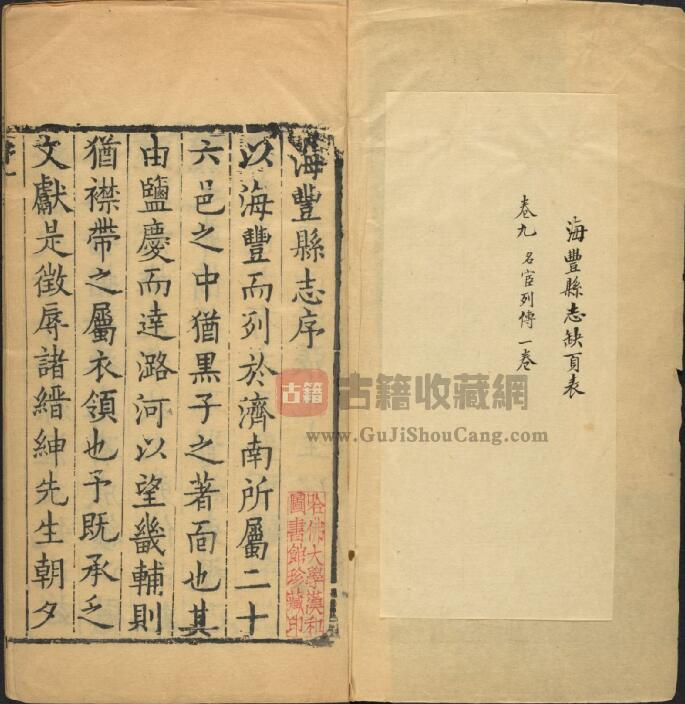 海豐縣志缺頁表
卷九 名宦列傳一卷
海豐縣志序
以海豐而列於濟南所屬二十
六邑之中猶黑子之著面也其
由鹽慶而達潞河以望畿輔則
猶襟帶之屬衣領也予既承乏
文獻是徵辱諸縉紳先生朝夕
哈佛大學漢和
圖書館珍藏印
古籍 古籍收藏網
www.GuJiShouCang.com